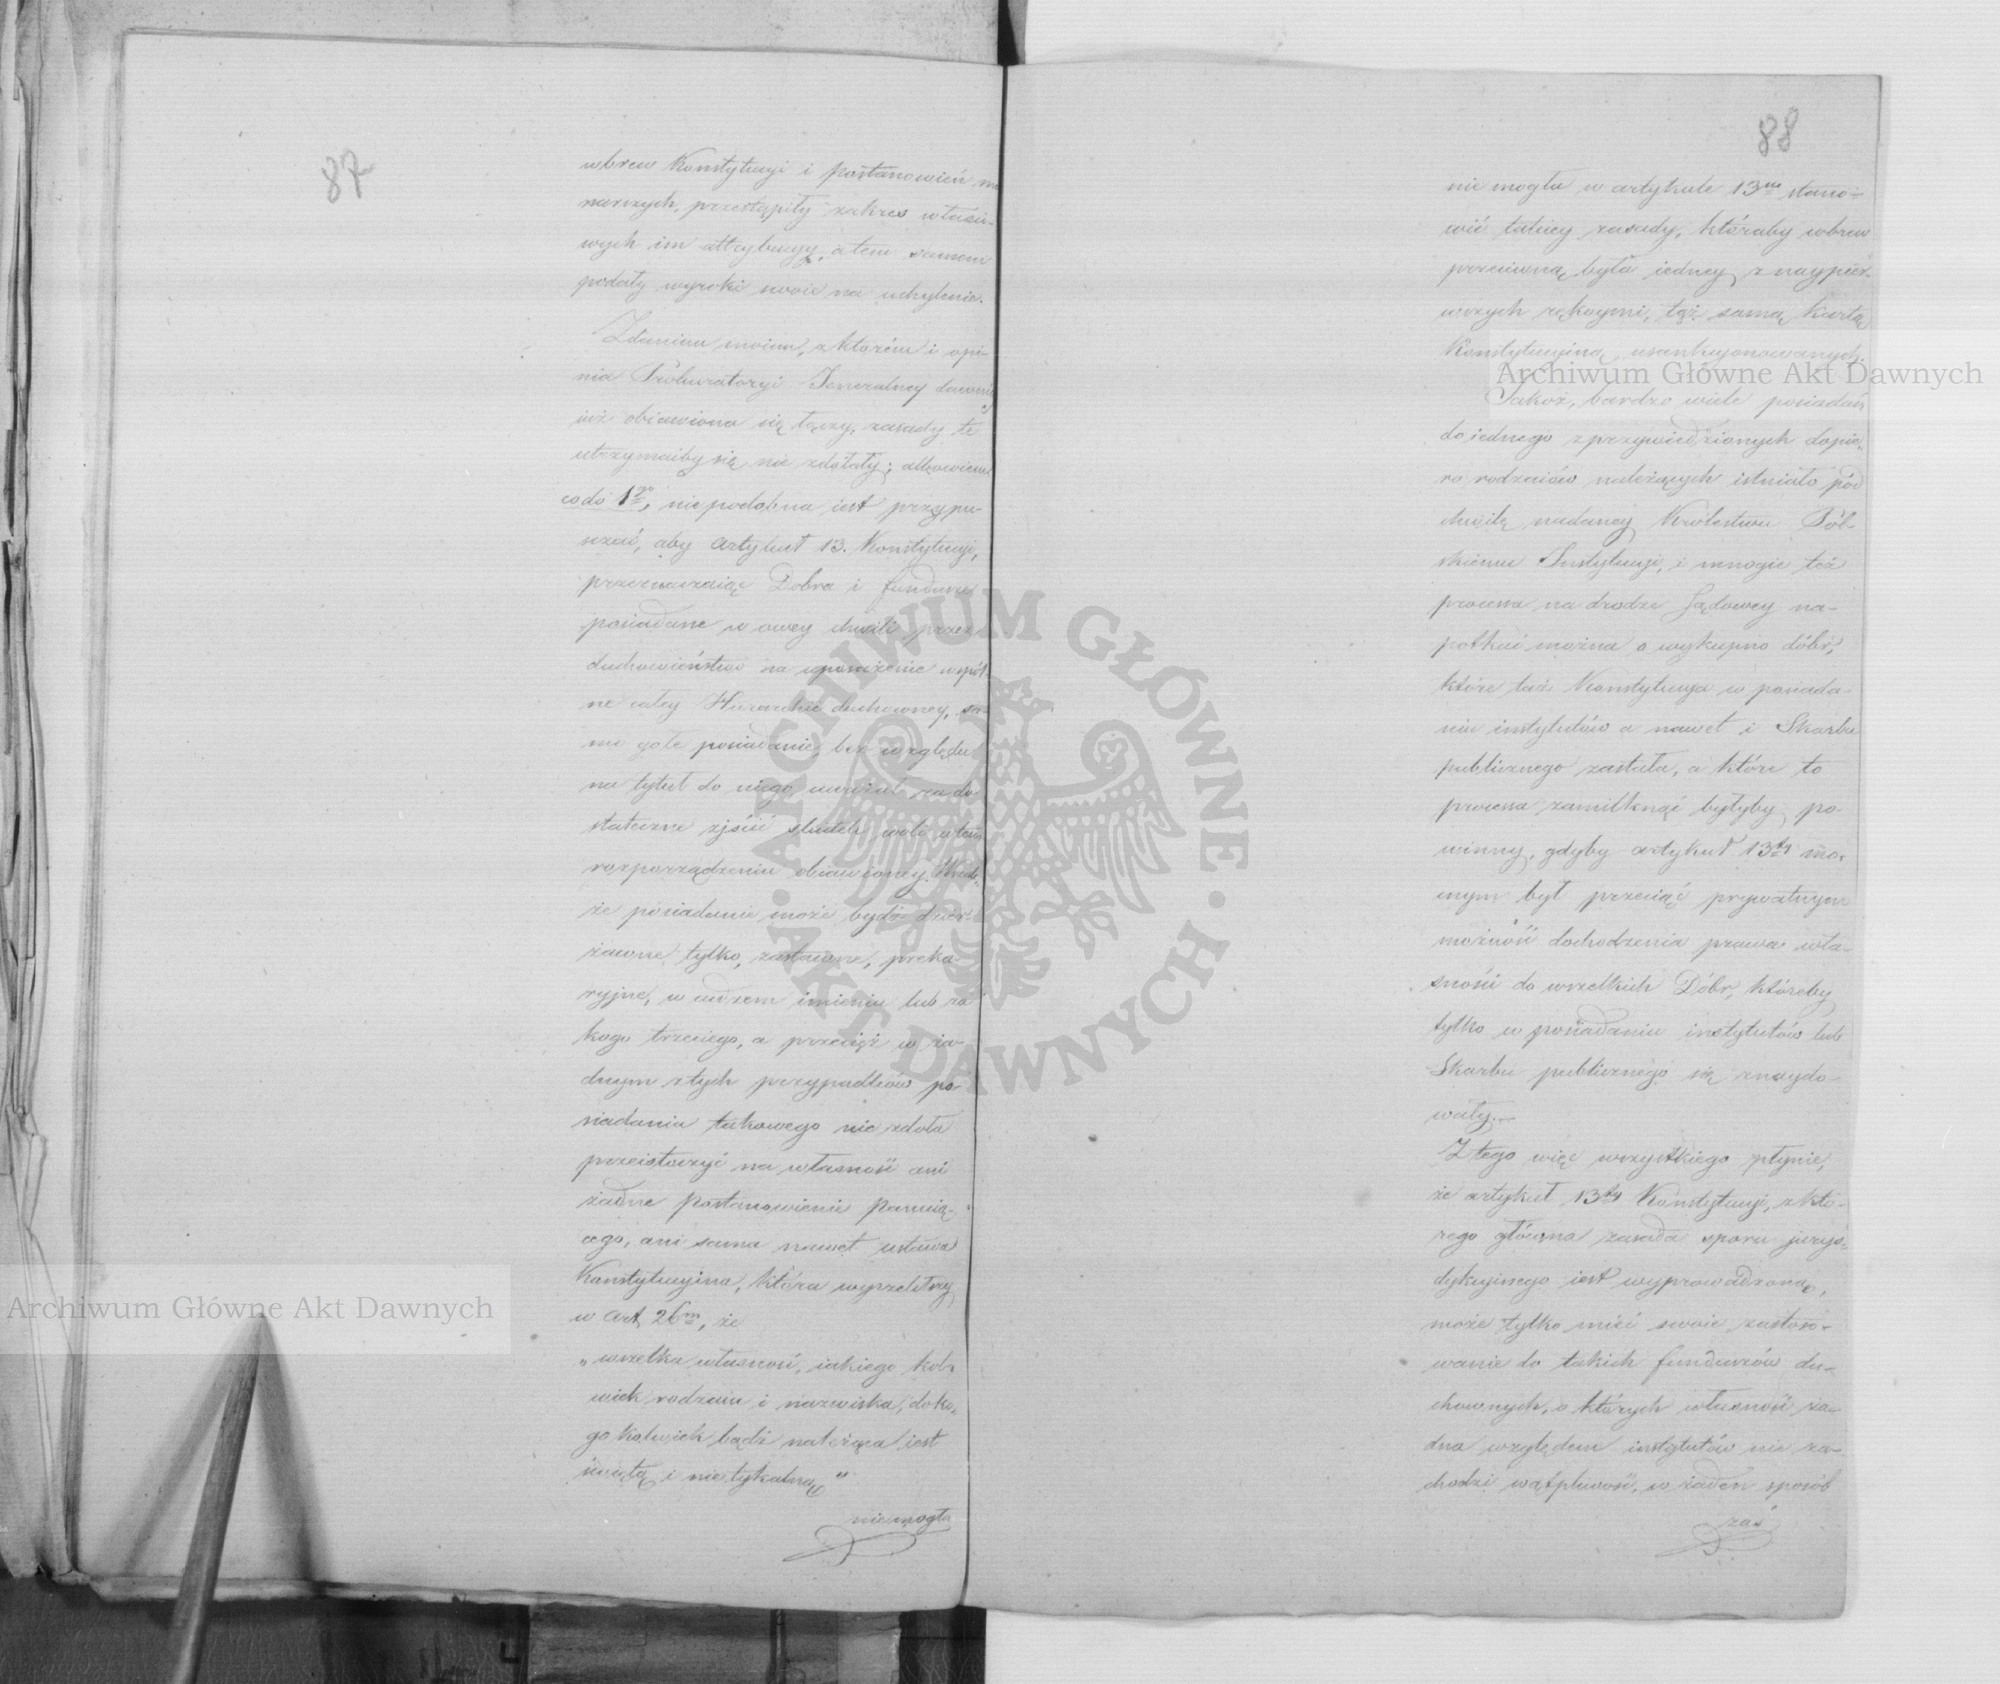 87
wbrew Konstytucyi i postanowień mo
narszych, przestąpiły zakres właści-
wych im attrybucyy, a tem samem
podały wyroki swoie na uchylenie.
Zdaniem moiem, z którém i opi-
nia Prokuratoryi Jeneralney dawniey
iuż obiawiona się łączy, zasady te
utrzymaćby się nie zdołały; albowiem
co do 1go, niepodobna iest przypu-
szczać, aby artykuł 13. Konstytucyi,
przeznaczaiąc Dobra i fundusze
posiadane w owey chwili przez
duchowieństwo na uposażenie wspól-
ne całey Hierarchii duchowney, sa-
mo gołe posiadanie, bez względu
na tytuł do niego uważał za do-
stateczne ziścić skutek woli w tem
rozporządzeniu obiawioney. Wszak-
że posiadanie może bydź dzier-
żawne tylko, zastawne, preka-
ryjne, w cudzem imieniu lub za
kogo trzeciego, a przecięż w ża-
dnym z tych przypadków po-
siadania takowego nie zdoła
przeistoczyć na własność ani
żadne postanowienie Panuią-
cego, ani sama nawet ustawa
Konstytucyina, która wyrzekłszy
w art. 26m, że
„wszelka własność, iakiego kol-
wiek rodzaiu i nazwiska, do ko-
go kolwiek bądź należąca, iest
świętą i nietykalną"
nie mogła
88
nie mogła w artykule 13m stano-
wić takiey zasady, któraby wbrew
przeciwną była iedney z naypier-
wszych rękoymi, tąż samą kartą
Konstytucyiną usankcjonowanych.
Jakoż, bardzo wiele posiadań
do iednego z przywiedzionych dopie-
ro rodzaiów należących istniało pód
chwilę nadaney Królestwu Pol-
skiemu Instytucyi, i mnogie też
processa na drodze Sądowey na-
potkać można o wykupno dóbr,
które taż Konstytucya w posiada-
niu instytutów a nawet i Skarbu
publicznego zastała, a które to
processa zamilknąć byłyby po-
winny, gdyby artykuł 13ty mo-
cnym był przeciąć prywatnym
możność dochodzenia prawa wła-
sności do wszelkich Dóbr, któreby
tylko w posiadaniu instytutów lub
Skarbu publicznego się znaydo-
wały.—
Z tego więc wszystkiego płynie,
że artykuł 13ty Konstytucyi, z któ-
rego główna zasada sporu jurys-
dykcyinego iest wyprowadzoną,
może tylko mieć swoie zastoso-
wanie do takich funduszów du-
chownych, o których własność ża-
dna względem instytutów nie za-
chodzi wątpliwość, w żaden sposób
zaś
Archiwum Główne Akt Dawnych
Archiwum Główne Akt Dawnych
ARCHIWUM GŁÓWNE
AKT DAWNYCH